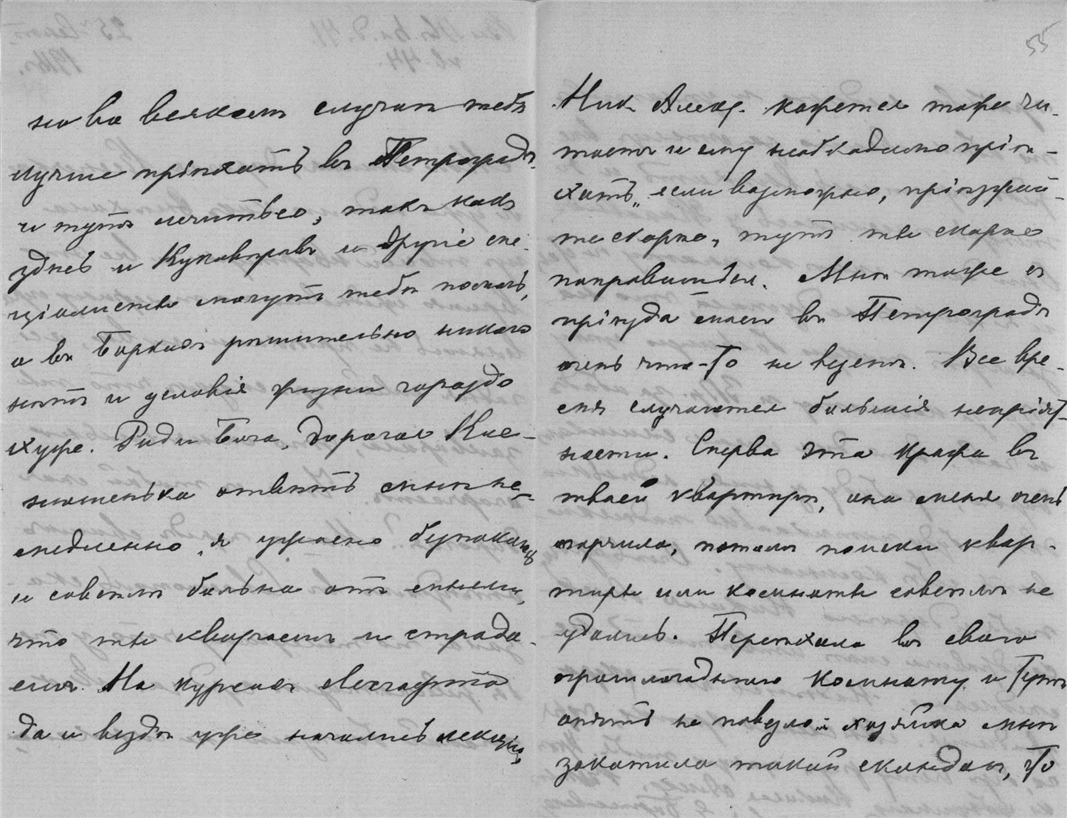 но во всякомъ случаѣ тебѣ
лучше пріѣхать въ Петроградъ
и тутъ лечиться, такъ какъ
здѣсь и Куковѣровъ и другіе спе-
ціалисты могутъ тебѣ помочь,
а въ Боркахъ рѣшительно никого
нѣтъ и условія жизни гораздо
хуже. Ради Бога, дорогая Кис-
ношенька отвѣтъ мнѣ не-
медленно, я ужасно безпокоюсь
и совсѣмъ больна отъ мысли,
что ты хвораешь и страда-
ешь. На курсахъ Лесгафта
да и вездѣ уже начались лекціи,
55
Ник. Алекс. кажется тоже чи-
таетъ и ему необходимо пріѣ-
хать, если возможно, пріѣзжай-
те скорѣе, тутъ ты скорѣе
поправишься. Мнѣ тоже съ
пріѣзда моего въ Петроградъ
очень что-то не везетъ. Все вре-
мя случаются большія непріят-
ности. Сперва эта кража въ
твоей квартирѣ, она меня очень
огорчила, потомъ поиски квар-
тиры или комнаты совсѣмъ не
удались. Переѣхала въ свою
прошлогоднюю комнату и тутъ
опять не повезло: хозяйка мнѣ
закатила такой скандалъ, что